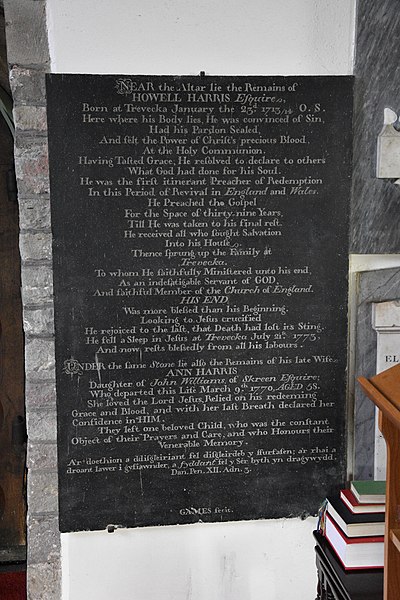 NEAR the Altar lie the Remains of
HOWELL HARRIS Esquire,
Born at Trevecka January the 23d. 1713/14 O. S.
Here where his Body lies, He was convinced of Sin,
Had his Pardon Sealed,
And felt the Power of Christ's precious Blood,
At the Holy Communion.
Having Tasted Grace, He resolved to declare to others
What God had done for his Soul.
He was the first itinerant Preacher of Redemption
In this Period of Revival in England and Wales.
He Preached the Gospel
For the Space of thirty-nine Years,
Till He was taken to his final rest.
He received all who sought Salvation
Into his House,
Thence sprung up the Family at
Trevecka,
To whom He faithfully Ministered unto his end,
As an indefatigable Servant of GOD,
And faithful Member of the Church of England.
HIS END
Was more blessed than his Beginning.
Looking to Jesus crucified
He rejoiced to the last, that Death had lost its Sting.
He fell a Sleep in Jesus at Trevecka July 21st. 1773,
And now, rests blessedly from all his labours.
UNDER the same Stone lie also the Remains of his late Wife
ANN HARRIS
Daughter of John Williams, of Skreen Esquire;
Who departed this Life March 9th. 1770, AGED 58.
She loved the Lord Jesus, Relied on his redeeming
Grace and Blood, and with her last Breath declared her
Confidence in HIM.
They left one beloved Child, who was the constant
Object of their Prayers and Care, and who Honours their
Venerable Memory.
A'r doethion a ddisgleiriant fel disgleirdeb y ffurfafen; a'r rhai a
droant lawer i gyfiawnder, a fyddant fel y Sêr byth yn dragywydd.
Dan. Pen. XII. Adn. 3.
GAMES fecit.
EL